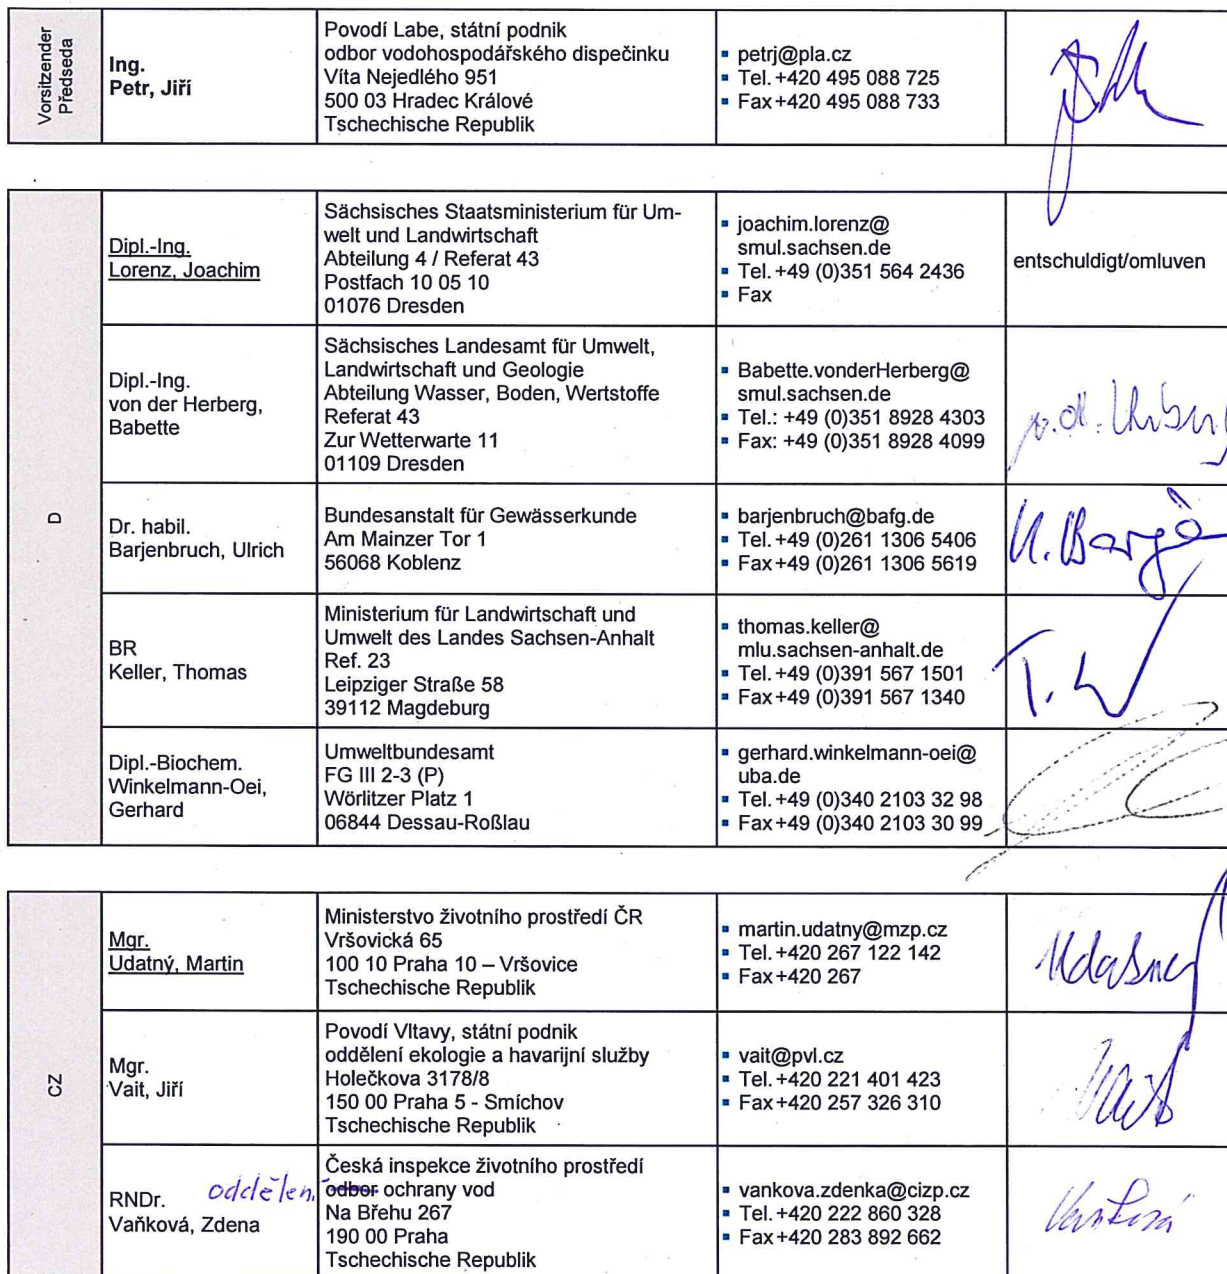 Vorsitzender
Předseda
Ing.
Petr, Jiří
Povodí Labe, státní podnik
odbor vodohospodářského dispečinku
Víta Nejedlého 951
500 03 Hradec Králové
Tschechische Republik
petrj@pla.cz
Tel. +420 495 088 725
Fax +420 495 088 733
D
Dipl.-Ing.
Lorenz, Joachim
Sächsisches Staatsministerium für Um-
welt und Landwirtschaft
Abteilung 4 / Referat 43
Postfach 10 05 10
01076 Dresden
joachim.lorenz@
smul.sachsen.de
Tel. +49 (0)351 564 2436
Fax
entschuldigt/omluven
Dipl.-Ing.
von der Herberg,
Babette
Sächsisches Landesamt für Umwelt,
Landwirtschaft und Geologie
Abteilung Wasser, Boden, Wertstoffe
Referat 43
Zur Wetterwarte 11
01109 Dresden
Babette.vonderHerberg@
smul.sachsen.de
Tel.: +49 (0)351 8928 4303
Fax: +49 (0)351 8928 4099
Dr. habil.
Barjenbruch, Ulrich
Bundesanstalt für Gewässerkunde
Am Mainzer Tor 1
56068 Koblenz
barjenbruch@bafg.de
Tel. +49 (0)261 1306 5406
Fax +49 (0)261 1306 5619
BR
Keller, Thomas
Ministerium für Landwirtschaft und
Umwelt des Landes Sachsen-Anhalt
Ref. 23
Leipziger Straße 58
39112 Magdeburg
thomas.keller@
mlu.sachsen-anhalt.de
Tel. +49 (0)391 567 1501
Fax +49 (0)391 567 1340
Dipl.-Biochem.
Winkelmann-Oei,
Gerhard
Umweltbundesamt
FG III 2-3 (P)
Wörlitzer Platz 1
06844 Dessau-Roßlau
gerhard.winkelmann-oei@
uba.de
Tel. +49 (0)340 2103 32 98
Fax +49 (0)340 2103 30 99
CZ
Mgr.
Udatný, Martin
Ministerstvo životního prostředí ČR
Vršovická 65
100 10 Praha 10 – Vršovice
Tschechische Republik
martin.udatny@mzp.cz
Tel. +420 267 122 142
Fax +420 267
Mgr.
Vait, Jiří
Povodí Vltavy, státní podnik
oddělení ekologie a havarijní služby
Holečkova 3178/8
150 00 Praha 5 - Smíchov
Tschechische Republik
vait@pvl.cz
Tel. +420 221 401 423
Fax +420 257 326 310
Vait
RNDr.
Vaňková, Zdena
Česká inspekce životního prostředí
oddělení odbor ochrany vod
Na Břehu 267
190 00 Praha
Tschechische Republik
vankova.zdenka@cizp.cz
Tel. +420 222 860 328
Fax +420 283 892 662
Vaňková